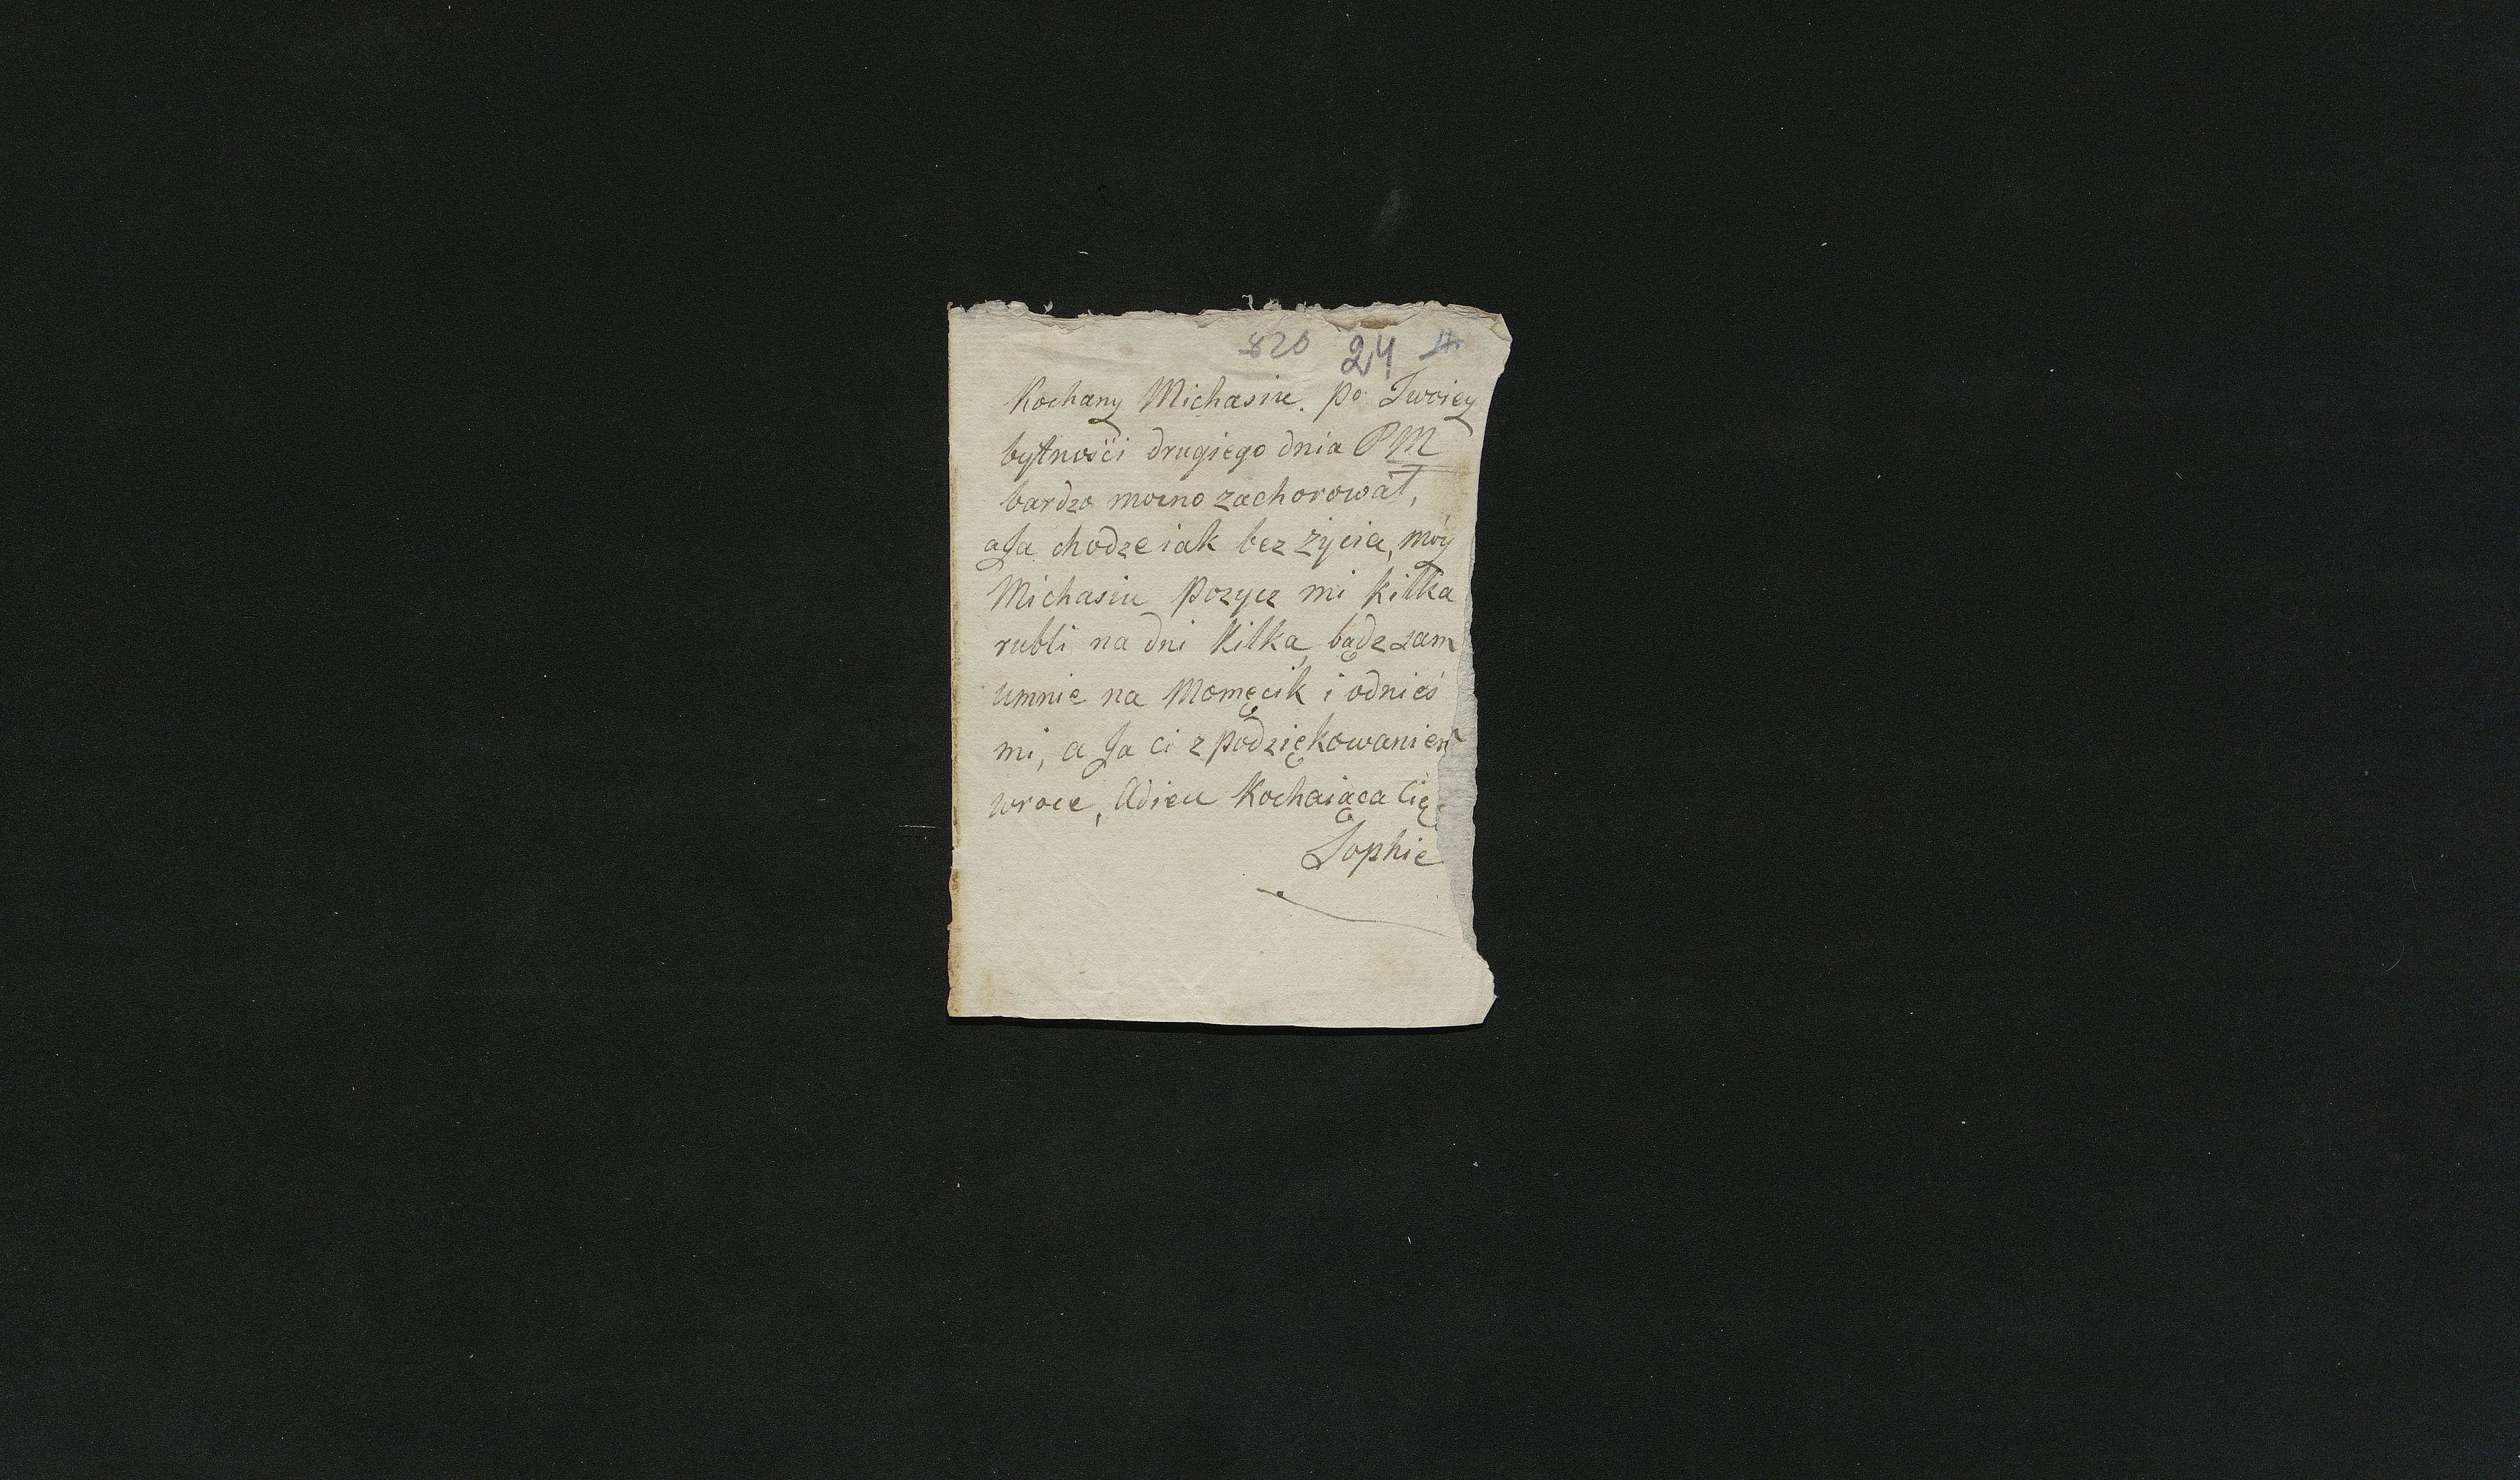 820 24
Kochany Michasiu. po Twoiey
bytności drugiego dnia PM
bardzo mocno zachorował,
a Ja chodze iak bez życia, móy
Michasiu pozycz mi kilka
rubli na dni kilka, bądz sam
umnie na Momęcik i odnieś
mi, a Ja ci z podziękowaniem
wroce, Adieu Kochaiąca Cię
Sophie